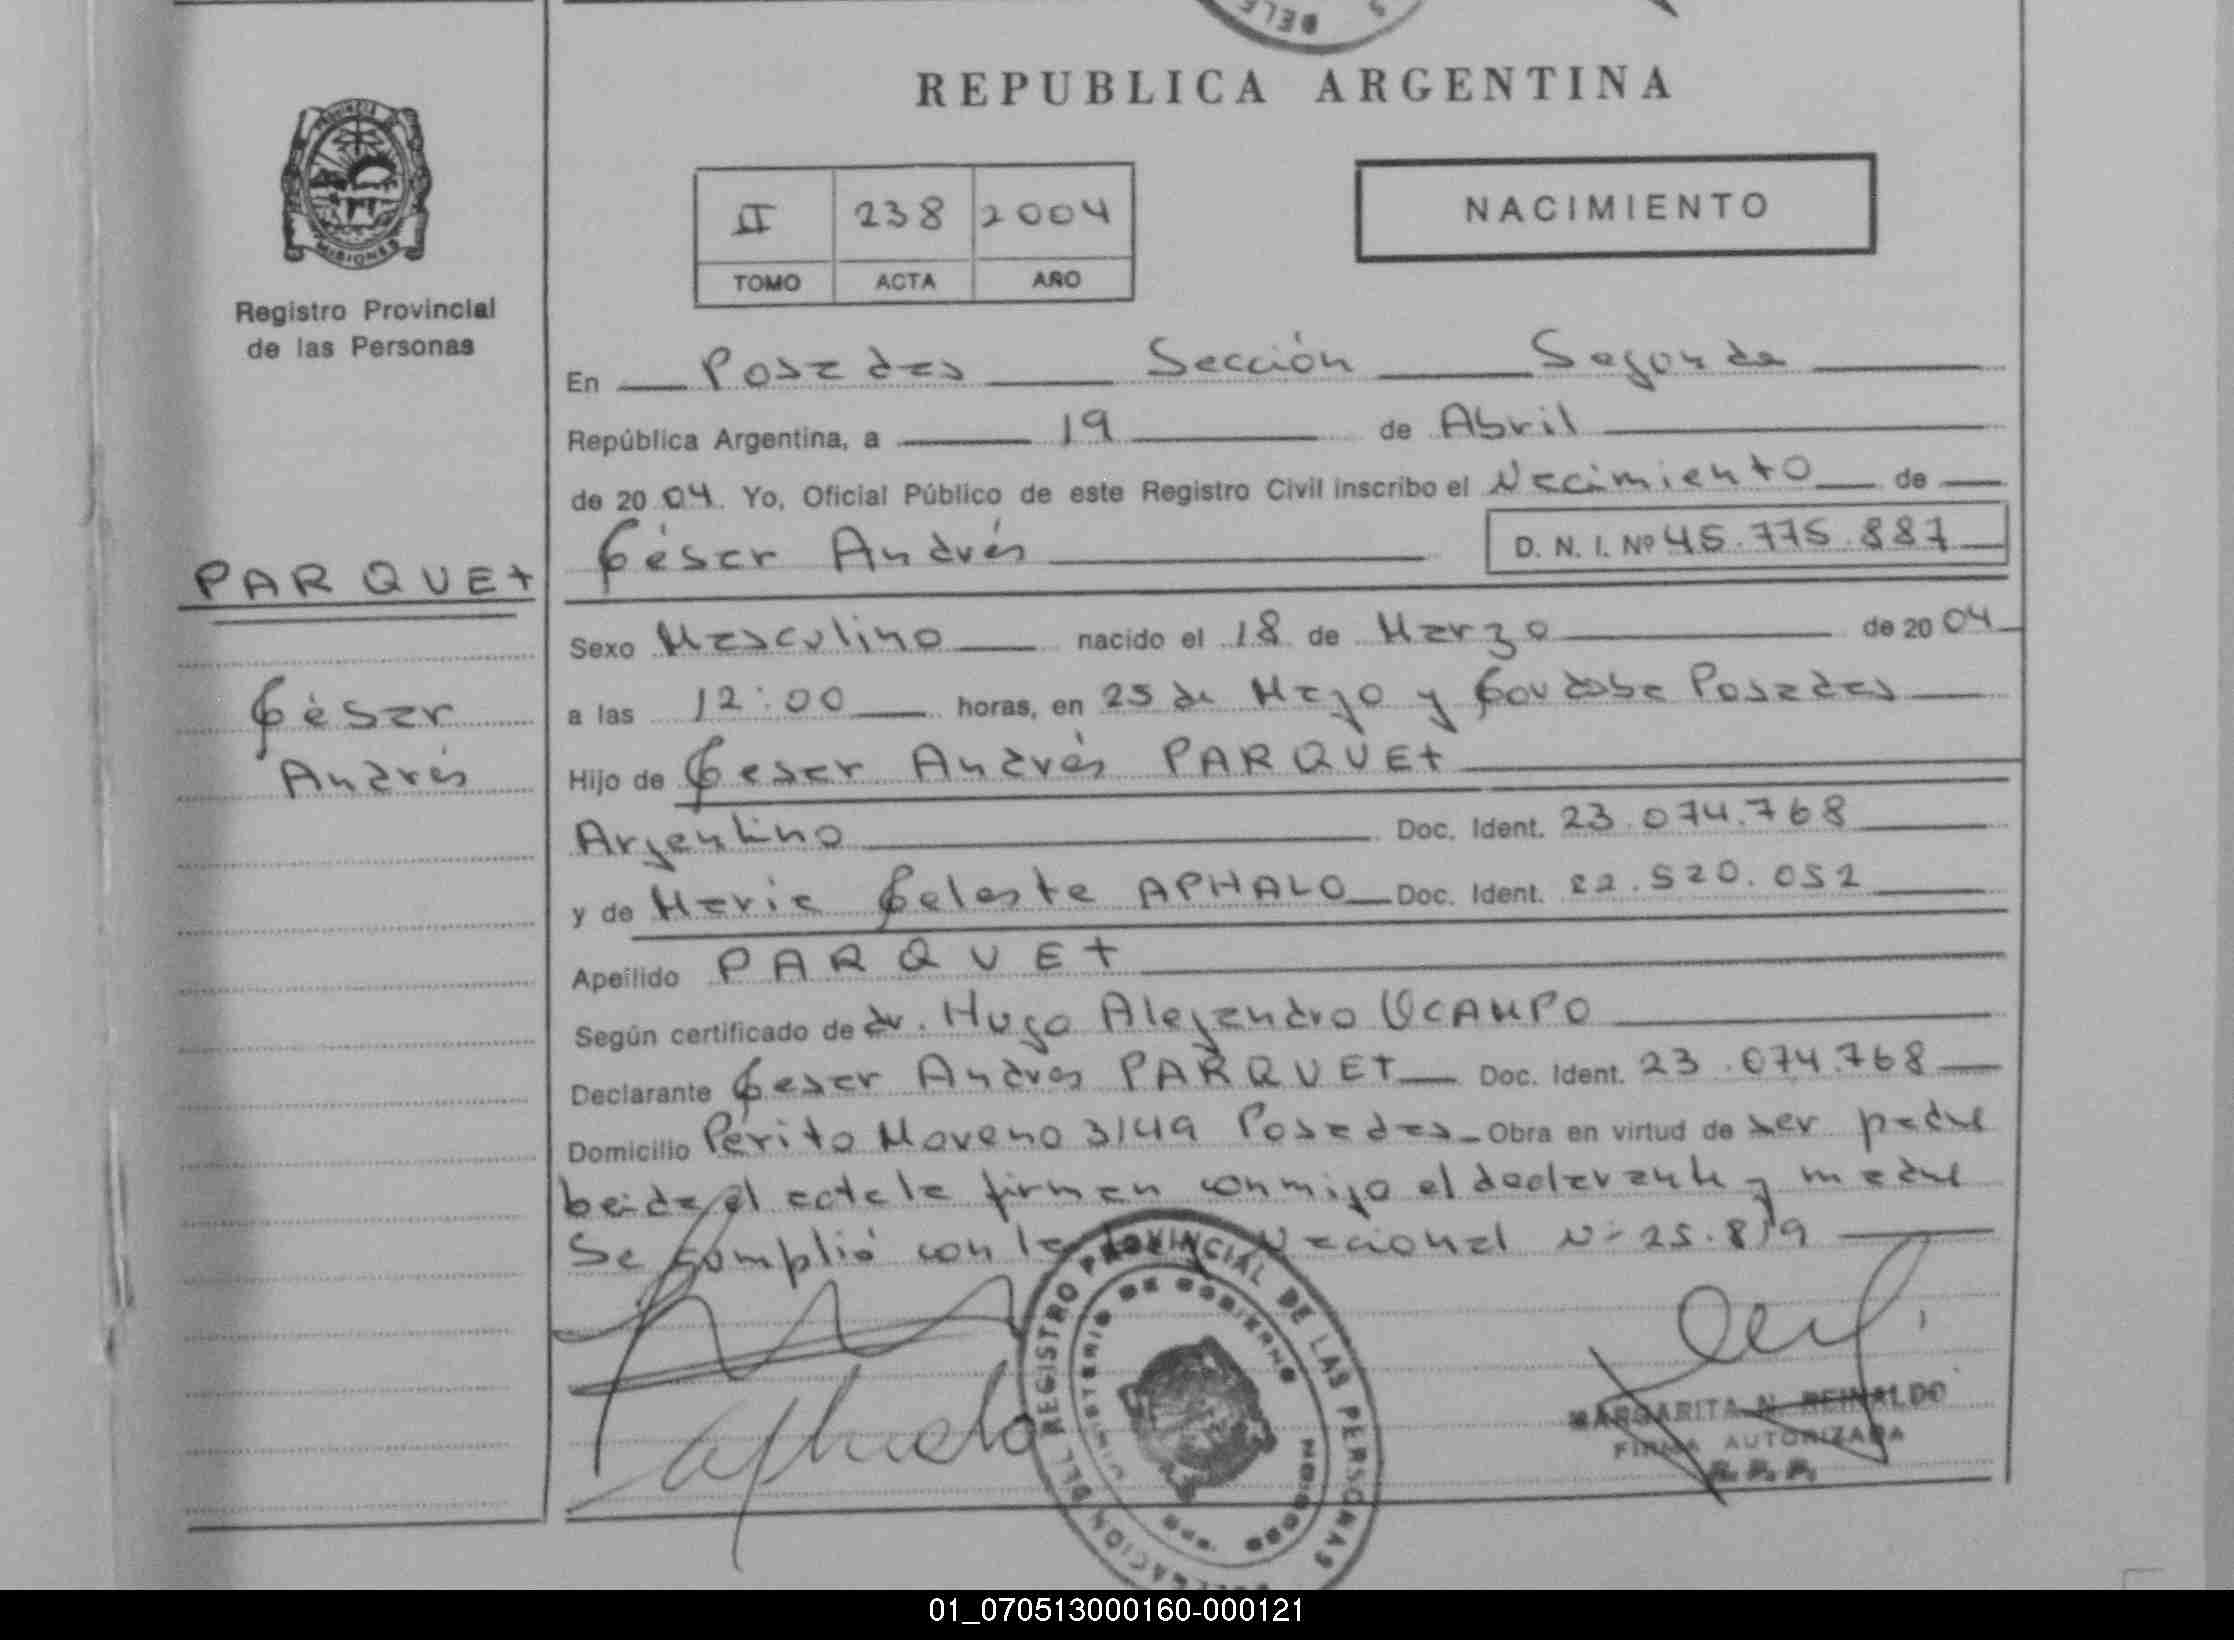 REPUBLICA ARGENTINA
PROVINCIA DE
MISIONES
Registro Provincial
de las Personas
II 238 2004
TOMO ACTA AÑO
NACIMIENTO
En Posadas Sección Segunda
República Argentina, a 19 de Abril
de 20 04. Yo, Oficial Público de este Registro Civil inscribo el Nacimiento de
César Andrés D. N. I. Nº 45.775.887
PARQUET
César
Andrés
Sexo Masculino nacido el 18 de Marzo de 20 04
a las 12:00 horas, en 25 de Mayo y Cordoba Posadas
Hijo de Cesar Andrés PARQUET
Argentino Doc. Ident. 23.074.768
y de Maria Celeste APHALO Doc. Ident. 22.520.052
Apellido PARQUET
Según certificado de dr. Hugo Alejandro OCAMPO
Declarante Cesar Andres PARQUET Doc. Ident. 23.074.768
Domicilio Périto Moreno 3149 Posadas Obra en virtud de ser padre
leida el acta la firman conmigo el declarante y madre
Se cumplió con la Ley Nacional Nº 25.819
DELEGACION DEL REGISTRO PROVINCIAL DE LAS PERSONAS
MINISTERIO DE GOBIERNO
MARGARITA N. REINALDO
FIRMA AUTORIZADA
R. P. P.
01_070513000160-000121